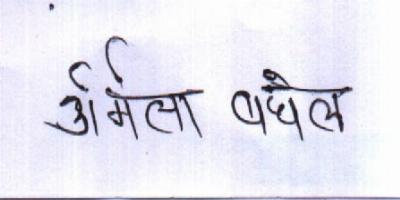 उर्मिला बघेल